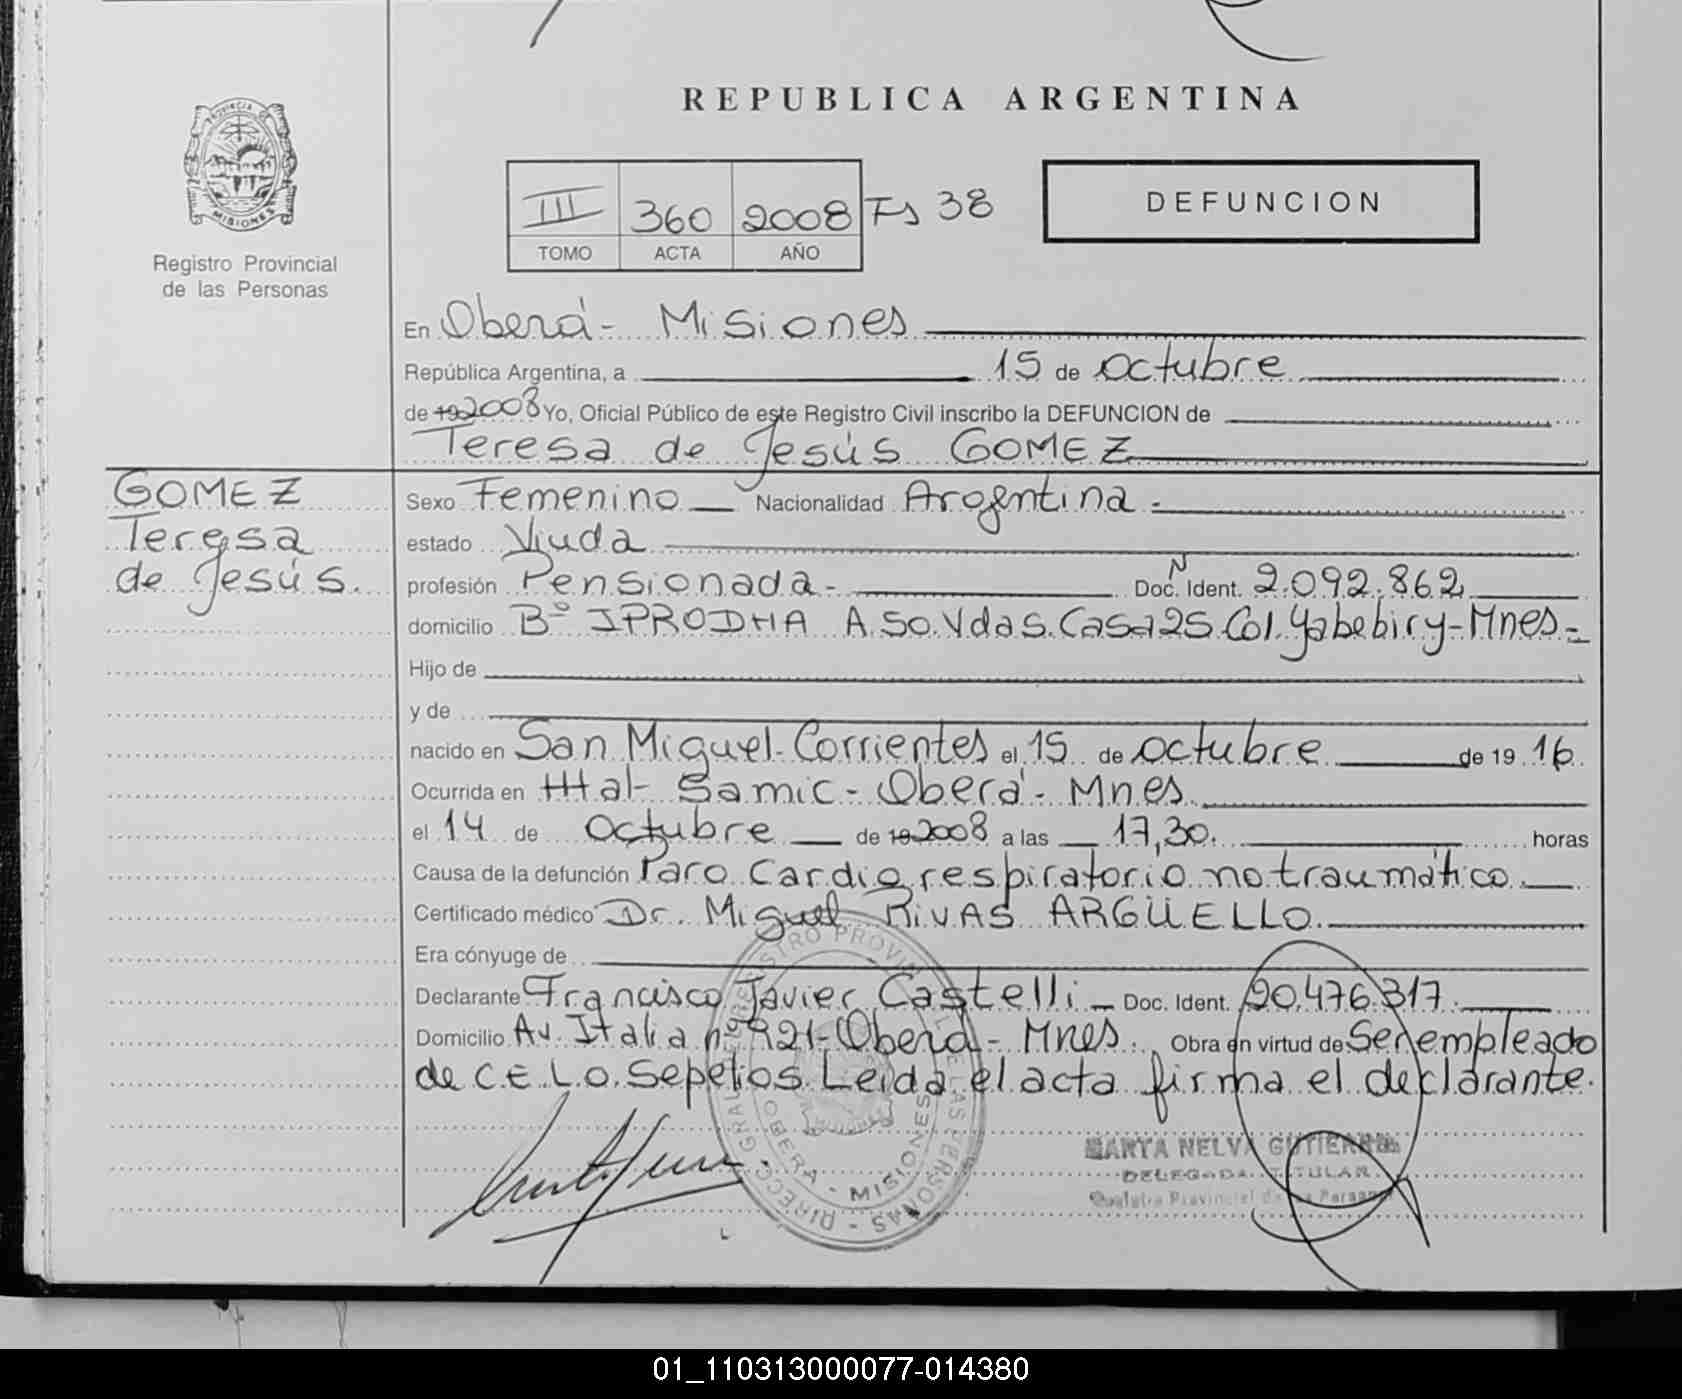 PROVINCIA DE
MISIONES
Registro Provincial
de las Personas
REPUBLICA ARGENTINA
III 360 2008 Fs 38
TOMO ACTA AÑO
DEFUNCION
En Oberá - Misiones
República Argentina, a 15 de octubre
de 19 2008 Yo, Oficial Público de este Registro Civil inscribo la DEFUNCION de
Teresa de Jesús GOMEZ
GOMEZ
Teresa
de Jesús.
Sexo Femenino Nacionalidad Argentina.
estado Viuda
profesión Pensionada - Doc. N Ident. 2.092.862
domicilio Bº IPRODHA A.So.Vdas. Casa 25 Col. Yabebiry - Mnes -
Hijo de
y de
nacido en San Miguel - Corrientes el 15 de octubre de 19 16
Ocurrida en Htal - Samic - Oberá - Mnes
el 14 de Octubre de 19 2008 a las 17,30. horas
Causa de la defunción Paro Cardio respiratorio no traumático.
Certificado médico Dr. Miguel RIVAS ARGÜELLO.
Era cónyuge de
Declarante Francisco Javier Castelli - Doc. Ident. 20.476.317.
Domicilio Av. Italia nº 921 - Oberá - Mnes. Obra en virtud de Ser empleado
de C.E.L.O. Sepelios. Leida el acta firma el declarante.
OBERA - MISIONES
MARTA NELVA GUTIERREZ
DELEGADA TITULAR
Registro Provincial de las Personas
01_110313000077-014380